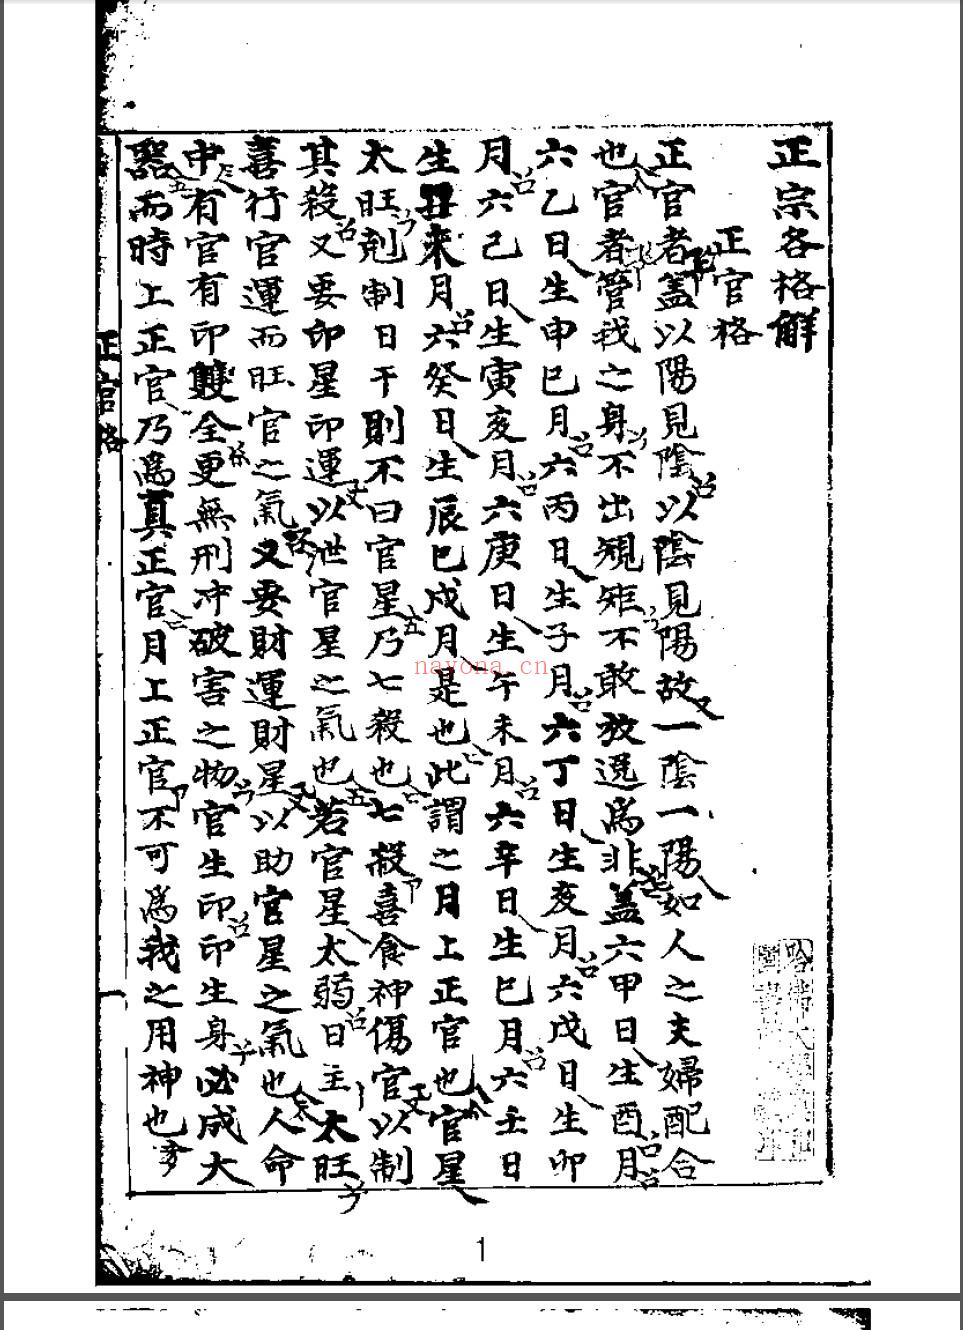 正宗各格解
正官格
正官者蓋以陽見陰以陰見陽故一陰一陽如人之夫婦配合
也官者管我之身不出規矩不敢放逸爲非蓋六甲日生酉月
六乙日生申巳月六丙日生子月六丁日生亥月六戊日生卯
月六己日生寅亥月六庚日生午未月六辛日生巳月六壬日
生丑未月六癸日生辰巳戌月是也此謂之月上正官也官星
太旺剋制日干則不曰官星乃七殺也七殺喜食神傷官以制
其殺又要印星印運以泄官星之氣也若官星太弱日主太旺
喜行官運而旺官之氣又要財運財星以助官星之氣也人命
中有官有印雙全更無刑冲破害之物官生印印生身必成大
器而時上正官乃爲真正官月上正官不可爲我之用神也
正官格
一
nayona.cn
1